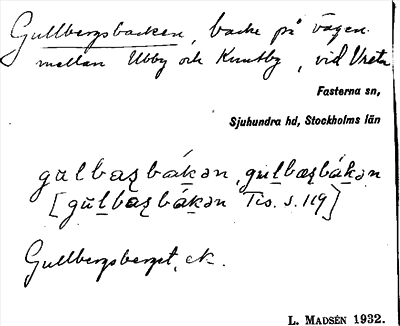 Gullbergsbacken, backe på vägen
mellan Ubby och Knutby, vid Vreta
Fasterna sn,
Sjuhundra hd, Stockholms län
gulbaʂbákən, gu̠l̠bæʂbákən
[gu̠l̠baʂbákən Tis. s. 119]
Gullbergsberget, ek.
L. MADSÉN 1932.